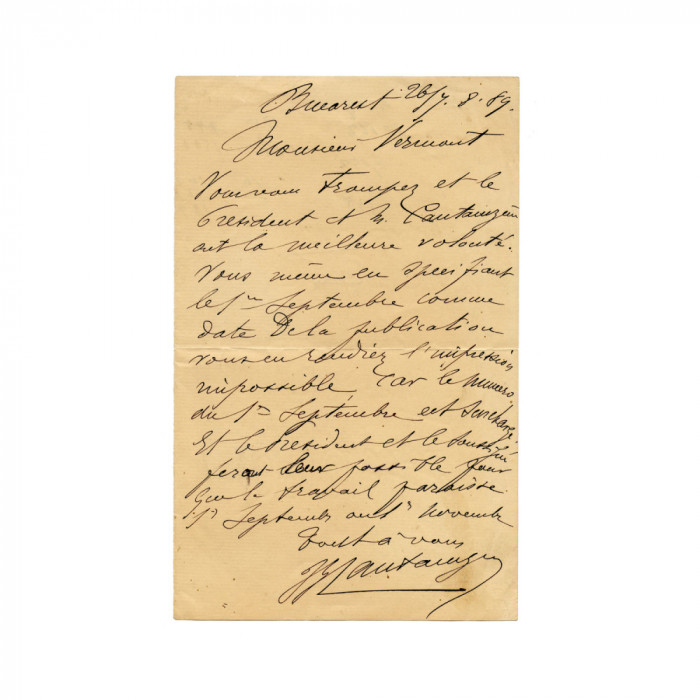 Bucarest 26/7. 8. 89.
Monsieur Vermont
Vous vous trompez et le
President et M. Cantacuzène
ont la meilleure volonté.
Vous même en specifiant
le 1er Septembre comme
date de la publication
vous en rendiez l'impression
impossible, Car le numero
du 1er Septembre est surchargé
Et le President et le soussigné
feront leur possible pour
que le travail paraisse
1r Septembr ou 1r Novembre
Tout à vous
Cantacuzène